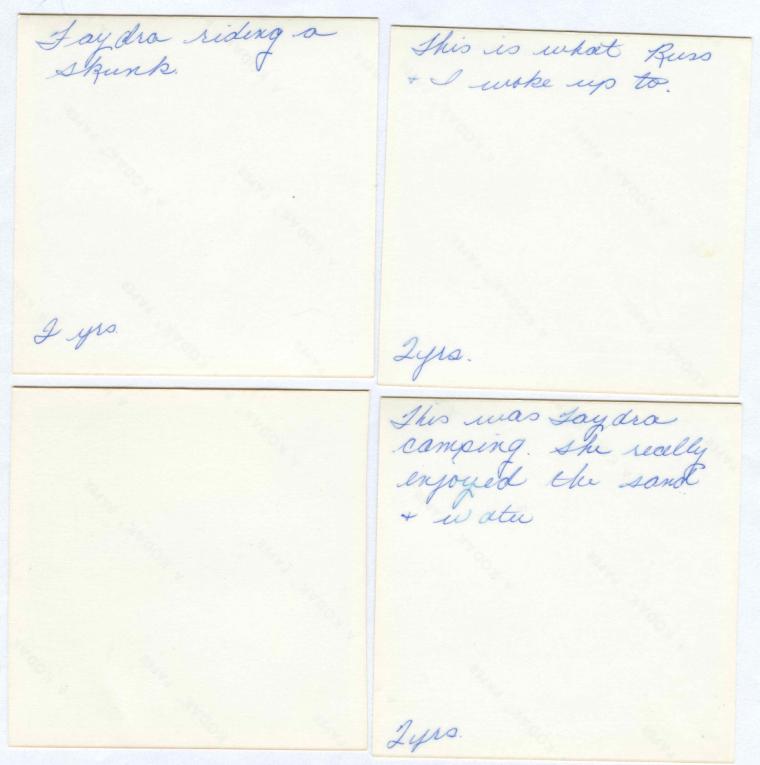 Taydra riding a
skunk.
2 yrs.
This is what Russ
+ I woke up to.
2yrs.
This was Taydra
camping. She really
enjoyed the sand
+ water
2yrs.